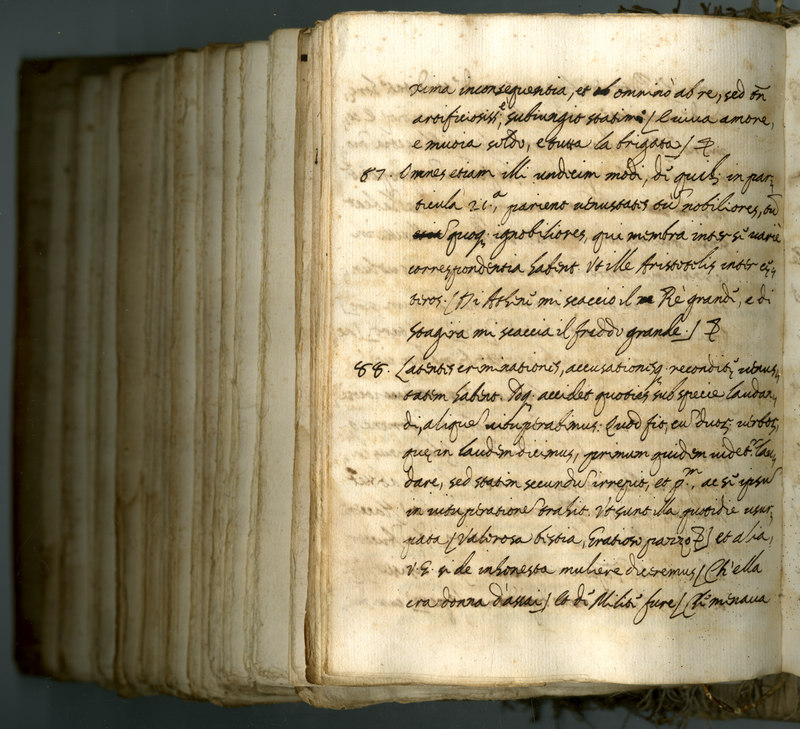 xima inconsequentia, et omninò ab re, sed tn̄
artificiosiss.ᵉ, subiungit statim / Cuiua amore,
e muoia soldo, e tutta la brigata /
87. Omnes etiam illi undicim modi, di quib; in par-
ticula 21ᵃ, parient uenustatis tū nobiliores, tū
quoq; ignobiliores, que membra inter sē uariè
correspondentia habent. Vt ille Aristotelis inter cę-
teros. / Di Athene mi scacciò il Rè grande, e di
Stagira mi scaccia il freddo grande. /
88. Latentis criminationis, accusationisq; recondit uenus-
tatem habent. Idq; accidet quoties sub specie laudan-
di, alique uituperabimus. Quod fit, cū duoꝝ uerboꝝ,
quę in laudem dicimus, primum quidem uidet lau-
dare, sed statim secundū irrepit, et pᵐ, ac sē ipsū
in uituperationē trahit. Vt sunt illa quotidie usur-
pata / Valorosa bestia, Gratioso pazzo / et alia,
V.G. si de inhonesta muliere diceremus / Ch'ella
era donna d'assai / Et dē Milite fure / Chē menaua